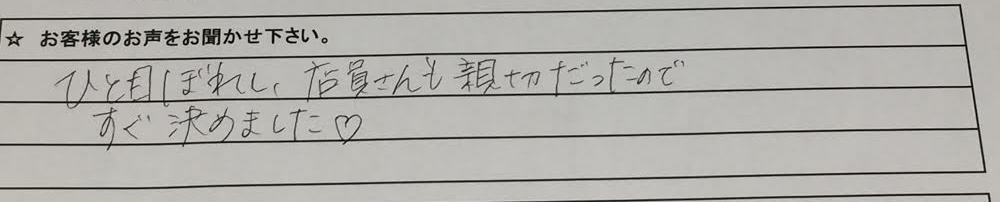 ☆ お客様のお声をお聞かせ下さい。
ひと目ぼれし、店員さんも親切だったので
すぐ決めました♡